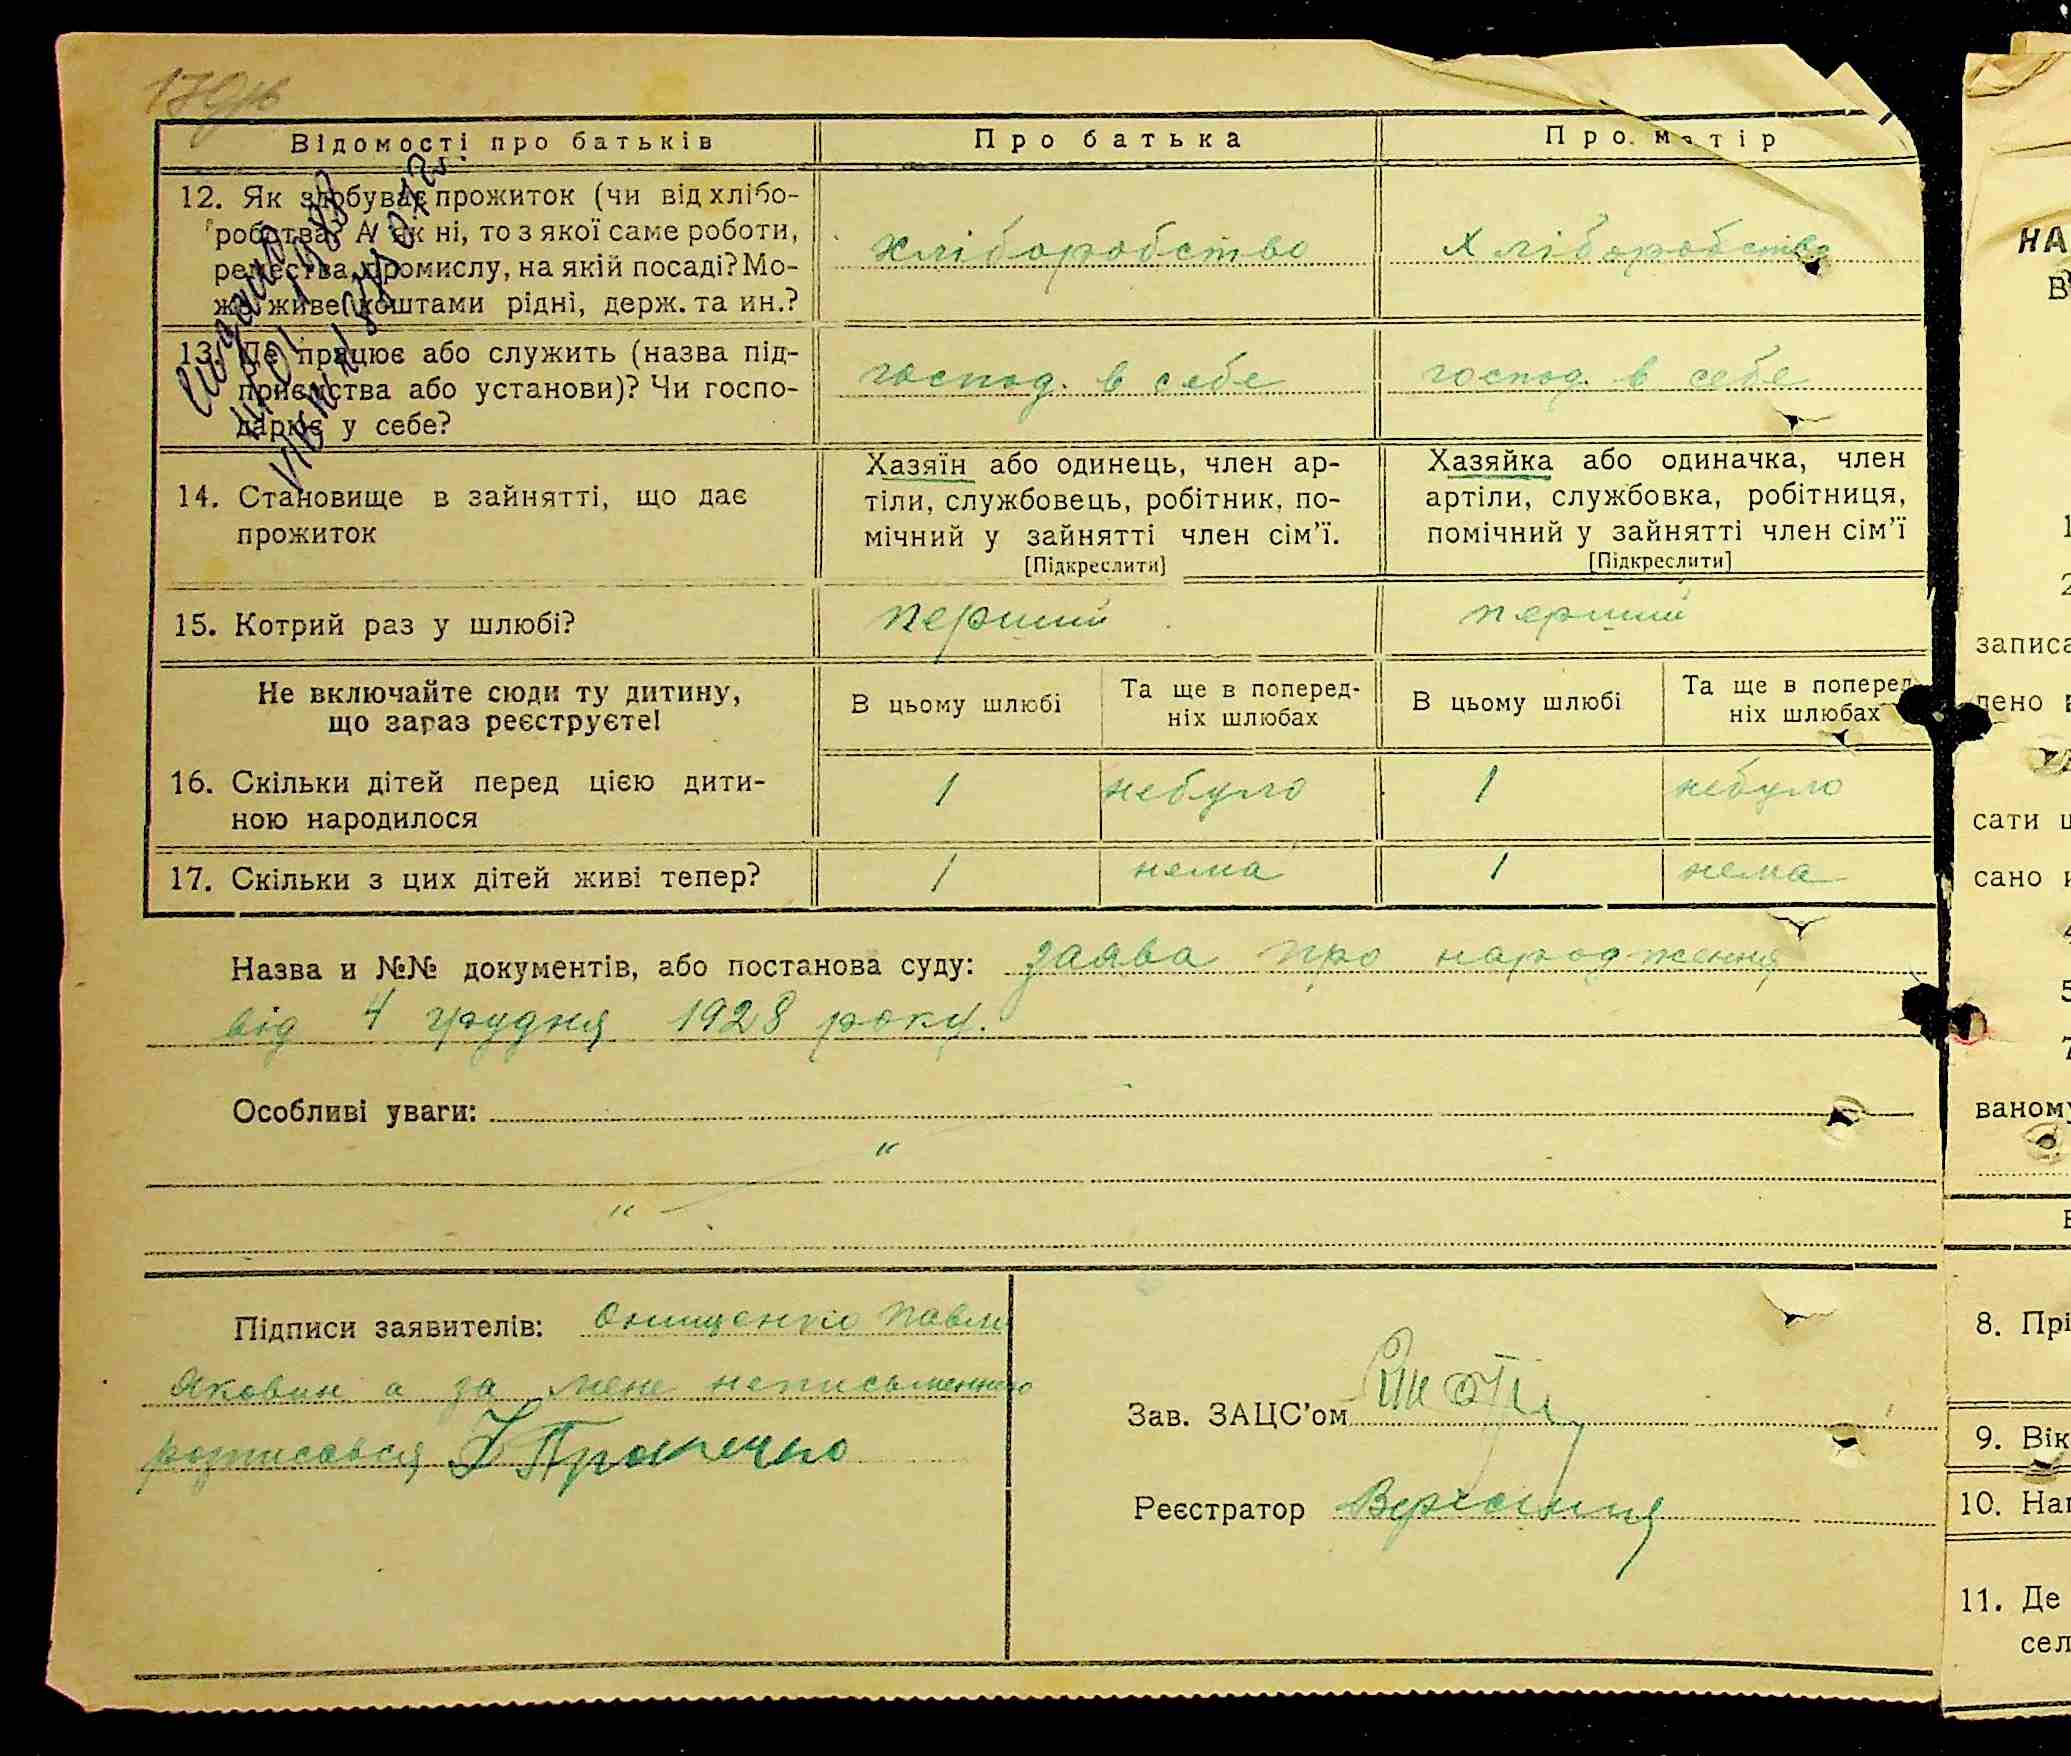 Відомості про батьків
Про батька
Про матір
12. Як здобуває прожиток (чи від хлібо-
робства? А як ні, то з якої саме роботи,
ремества, промислу, на якій посаді? Мо-
же живе коштами рідні, держ. та ин.?
хліборобство
хліборобство
13. Де працює або служить (назва під-
приємства або установи)? Чи госпо-
дарює у себе?
господ. в себе
господ. в себе
14. Становище в зайнятті, що дає
прожиток
Хазяїн або одинець, член ар-
тіли, службовець, робітник, по-
мічний у зайнятті член сім'ї.
[Підкреслити]
Хазяйка або одиначка, член
артіли, службовка, робітниця,
помічний у зайнятті член сім'ї
[Підкреслити]
15. Котрий раз у шлюбі?
перший
перший
Не включайте сюди ту дитину,
що зараз реєструєте!
В цьому шлюбі
Та ще в поперед-
ніх шлюбах
В цьому шлюбі
Та ще в поперед-
ніх шлюбах
16. Скільки дітей перед цією дити-
ною народилося
1
небуло
1
небуло
17. Скільки з цих дітей живі тепер?
1
нема
1
нема
Назва и №№ документів, або постанова суду: заява про народження
від 4 грудня 1928 року.
Особливі уваги:
"
"
Підписи заявителів: Онищенко Павло
Яковин а за мене неписьменного
розписався
Зав. ЗАЦС'ом
Реєстратор
НА
В
1
2
записа
лено
сати
сано
5
7
ваному
8. Прі
9. Вік
10. Нац
11. Де
сел